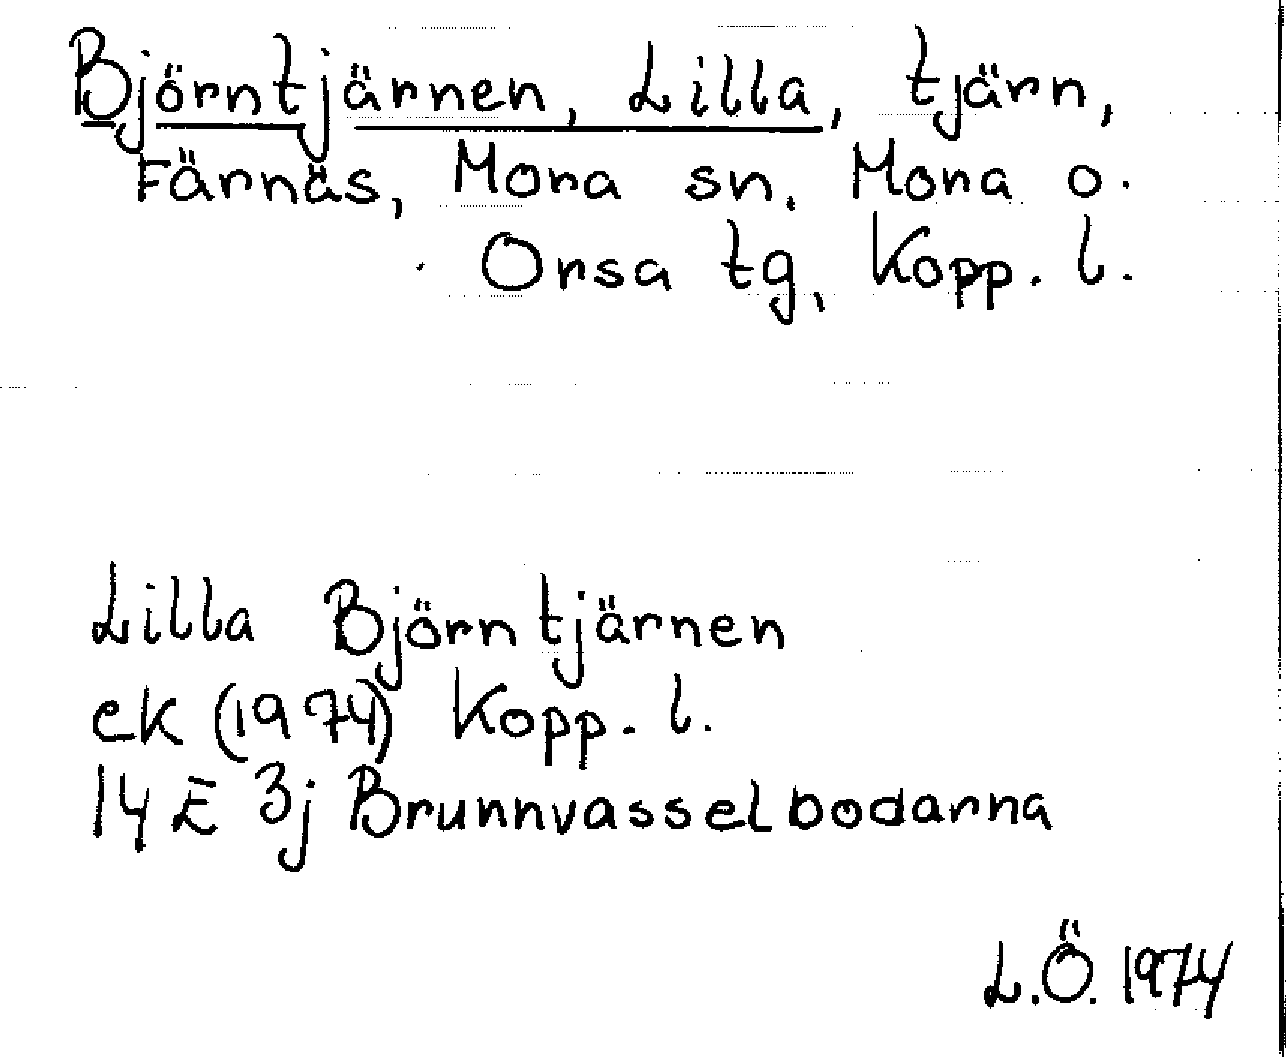 Björntjärnen, Lilla, tjärn,
Färnäs, Mora sn, Mora o.
Orsa tg, Kopp. l.
Lilla Björntjärnen
ek (1974) Kopp. l.
14 E 3j Brunnvasselbodarna
L.Ö. 1974